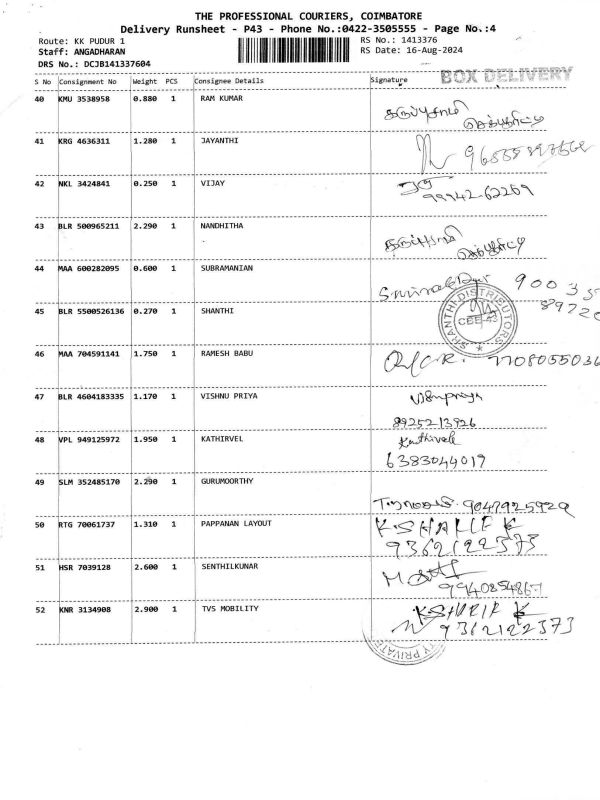 THE PROFESSIONAL COURIERS, COIMBATORE
Delivery Runsheet - P43 - Phone No.:0422-3505555 - Page No.:4
Route: KK PUDUR 1
RS No.: 1413376
Staff: ANGADHARAN
RS Date: 16-Aug-2024
DRS No.: DCJB141337604
BOX DELIVERY
S No Consignment No Weight PCS Consignee Details Signature
40 KMU 3538958 0.880 1 RAM KUMAR
41 KRG 4636311 1.280 1 JAYANTHI
42 NKL 3424841 0.250 1 VIJAY
99942-62269
43 BLR 500965211 2.290 1 NANDHITHA
44 MAA 600282095 0.600 1 SUBRAMANIAN
900 35
SHANTHI DISTRIBUTORS
CBE-43
45 BLR 5500526136 0.270 1 SHANTHI
46 MAA 704591141 1.750 1 RAMESH BABU
7708055036
47 BLR 4604183335 1.170 1 VISHNU PRIYA
Vishnupriya
8925213926
48 VPL 949125972 1.950 1 KATHIRVEL
Kathirvel
6383044019
49 SLM 352485170 2.290 1 GURUMOORTHY
9047925929
50 RTG 70061737 1.310 1 PAPPANAN LAYOUT
9362122373
51 HSR 7039128 2.600 1 SENTHILKUNAR
9940854867
52 KNR 3134908 2.900 1 TVS MOBILITY
9362122373
TY PRIVATE